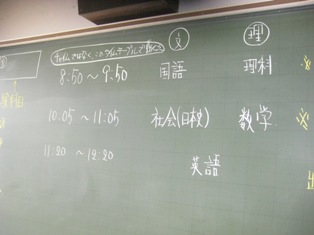 チャイムではなく、このタイムテーブルで動く。
文 理
8:50～9:50 国語 理科
10:05～11:05 社会(日本史) 数学
11:20～12:20 英語